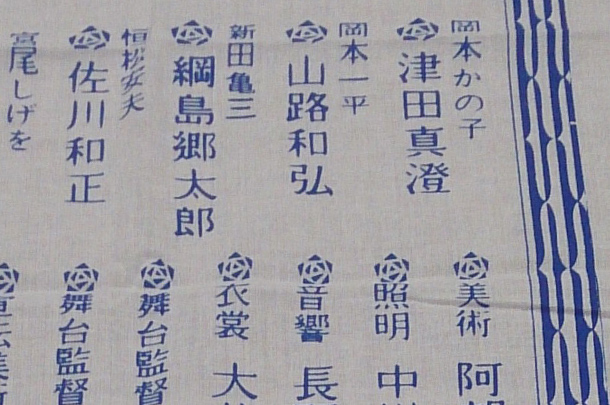 岡本かの子
津田真澄
岡本一平
山路和弘
新田亀三
綱島郷太郎
恒松安夫
佐川和正
宮尾しげを
美術 阿
照明 中
音響 長
衣裳 大
舞台監督
舞台監督